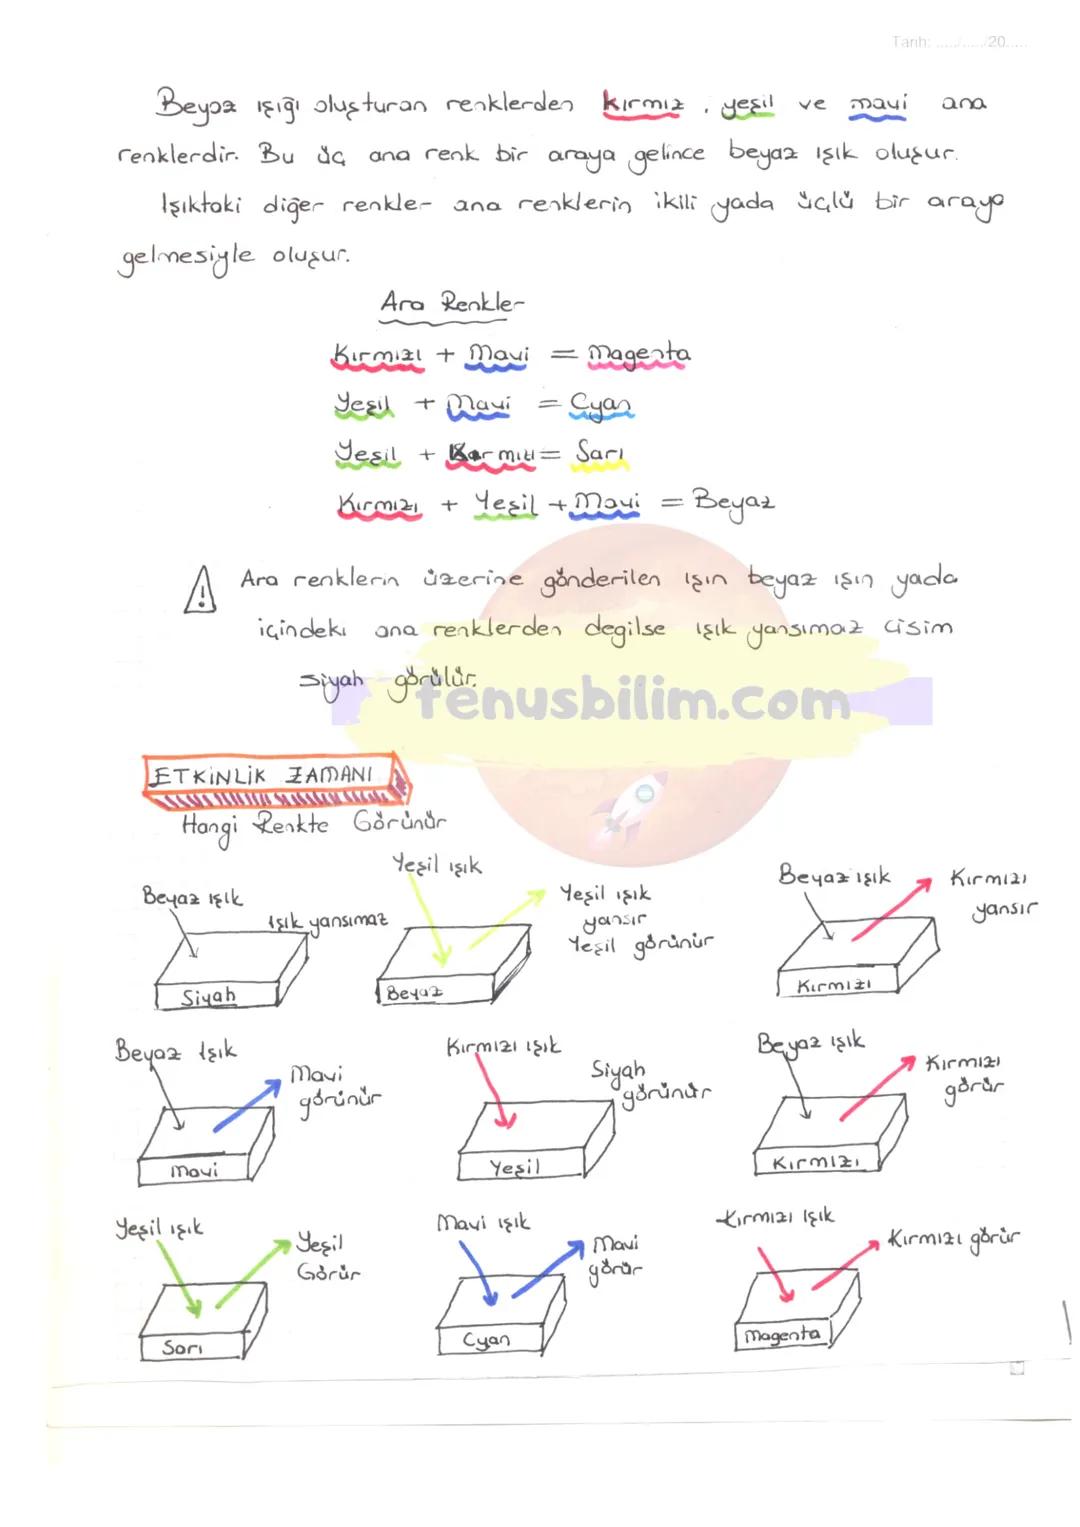 Tarih: ...../...../20.....
Beyaz ışığı oluşturan renklerden kırmız, yeşil ve mavi ana
renklerdir. Bu üç ana renk bir araya gelince beyaz ışık oluşur.
Işıktaki diğer renkler ana renklerin ikili yada üçlü bir araya
gelmesiyle oluşur.
Ara Renkler
Kırmızı + Mavi = Magenta
Yeşil + Mavi = Cyan
Yeşil + Kırmızı = Sarı
Kırmızı + Yeşil + Mavi = Beyaz
Ara renklerin üzerine gönderilen ışın beyaz ışın yada
içindeki ana renklerden degilse ışık yansımaz cisim
siyah görülür.
fenusbilim.com
ETKİNLİK ZAMANI
Hangi Renkte Görünür
Beyaz ışık
Işık yansımaz
Siyah
Yeşil ışık
Yeşil ışık
yansır
Yeşil görünür
Beyaz
Beyaz ışık
Kırmızı
yansır
Kırmızı
Beyaz Işık
Mavi
görünür
Mavi
Kırmızı ışık
Siyah
görünür
Yeşil
Beyaz ışık
Kırmızı
görür
Kırmızı
Yeşil ışık
Yeşil
Görür
Sarı
Mavi ışık
Mavi
görür
Cyan
Kırmızı Işık
Kırmızı görür
Magenta